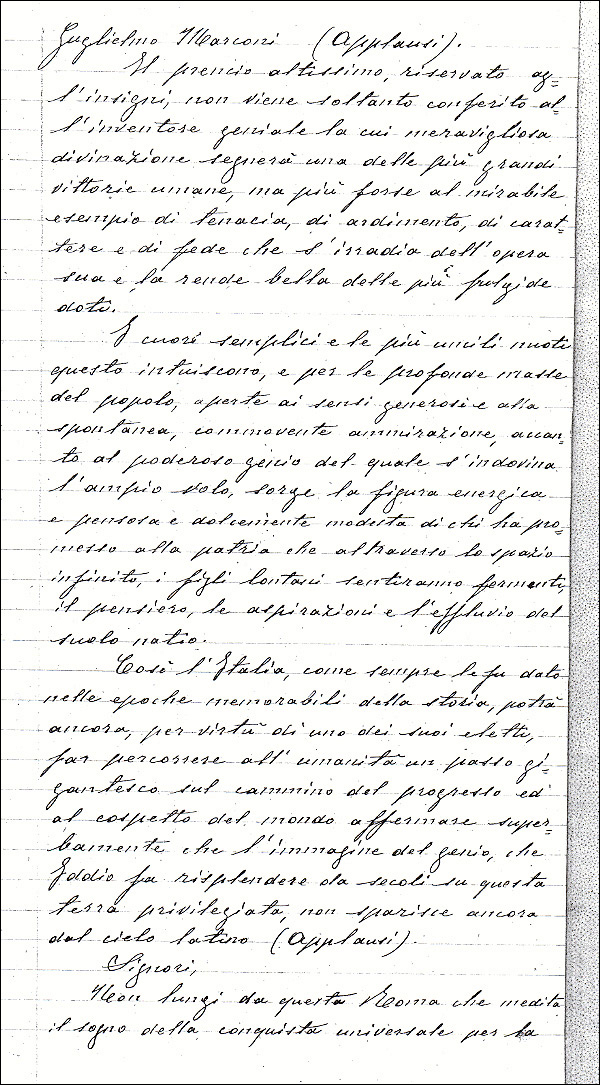 Guglielmo Marconi (Applausi).
Il premio altissimo, riservato ag=
l'insigni, non viene soltanto conferito al=
l'inventore geniale la cui meravigliosa
divinazione segnerà una delle più grandi
vittorie umane, ma più forse al mirabile
esempio di tenacia, di ardimento, di carat=
tere e di fede che s'irradia dell'opera
sua e la rende bella delle più fulgide
doti.
I cuori semplici e le più umili menti
questo intuiscono, e per le profonde masse
del popolo, aperte ai sensi generosi e alla
spontanea, commovente ammirazione, accan=
to al poderoso genio del quale s'indovina
l'ampio volo, sorge la figura energica
e pensosa e dolcemente modesta di chi ha pro=
messo alla patria che attraverso lo spazio
infinito, i figli lontani sentiranno frementi,
il pensiero, le aspirazioni e l'effluvio del
suolo natio.
Così l'Italia, come sempre le fu dato
nelle epoche memorabili della storia, potrà
ancora, per virtù di uno dei suoi eletti,
far percorrere all'umanità un passo gi=
gantesco sul cammino del progresso ed
al cospetto del mondo affermare super=
bamente che l'immagine del genio, che
Iddio fa risplendere da secoli su questa
terra privilegiata, non sparisce ancora
dal cielo latino (Applausi).
Signori,
Non lungi da questa Roma che medita
il sogno della conquista universale per la